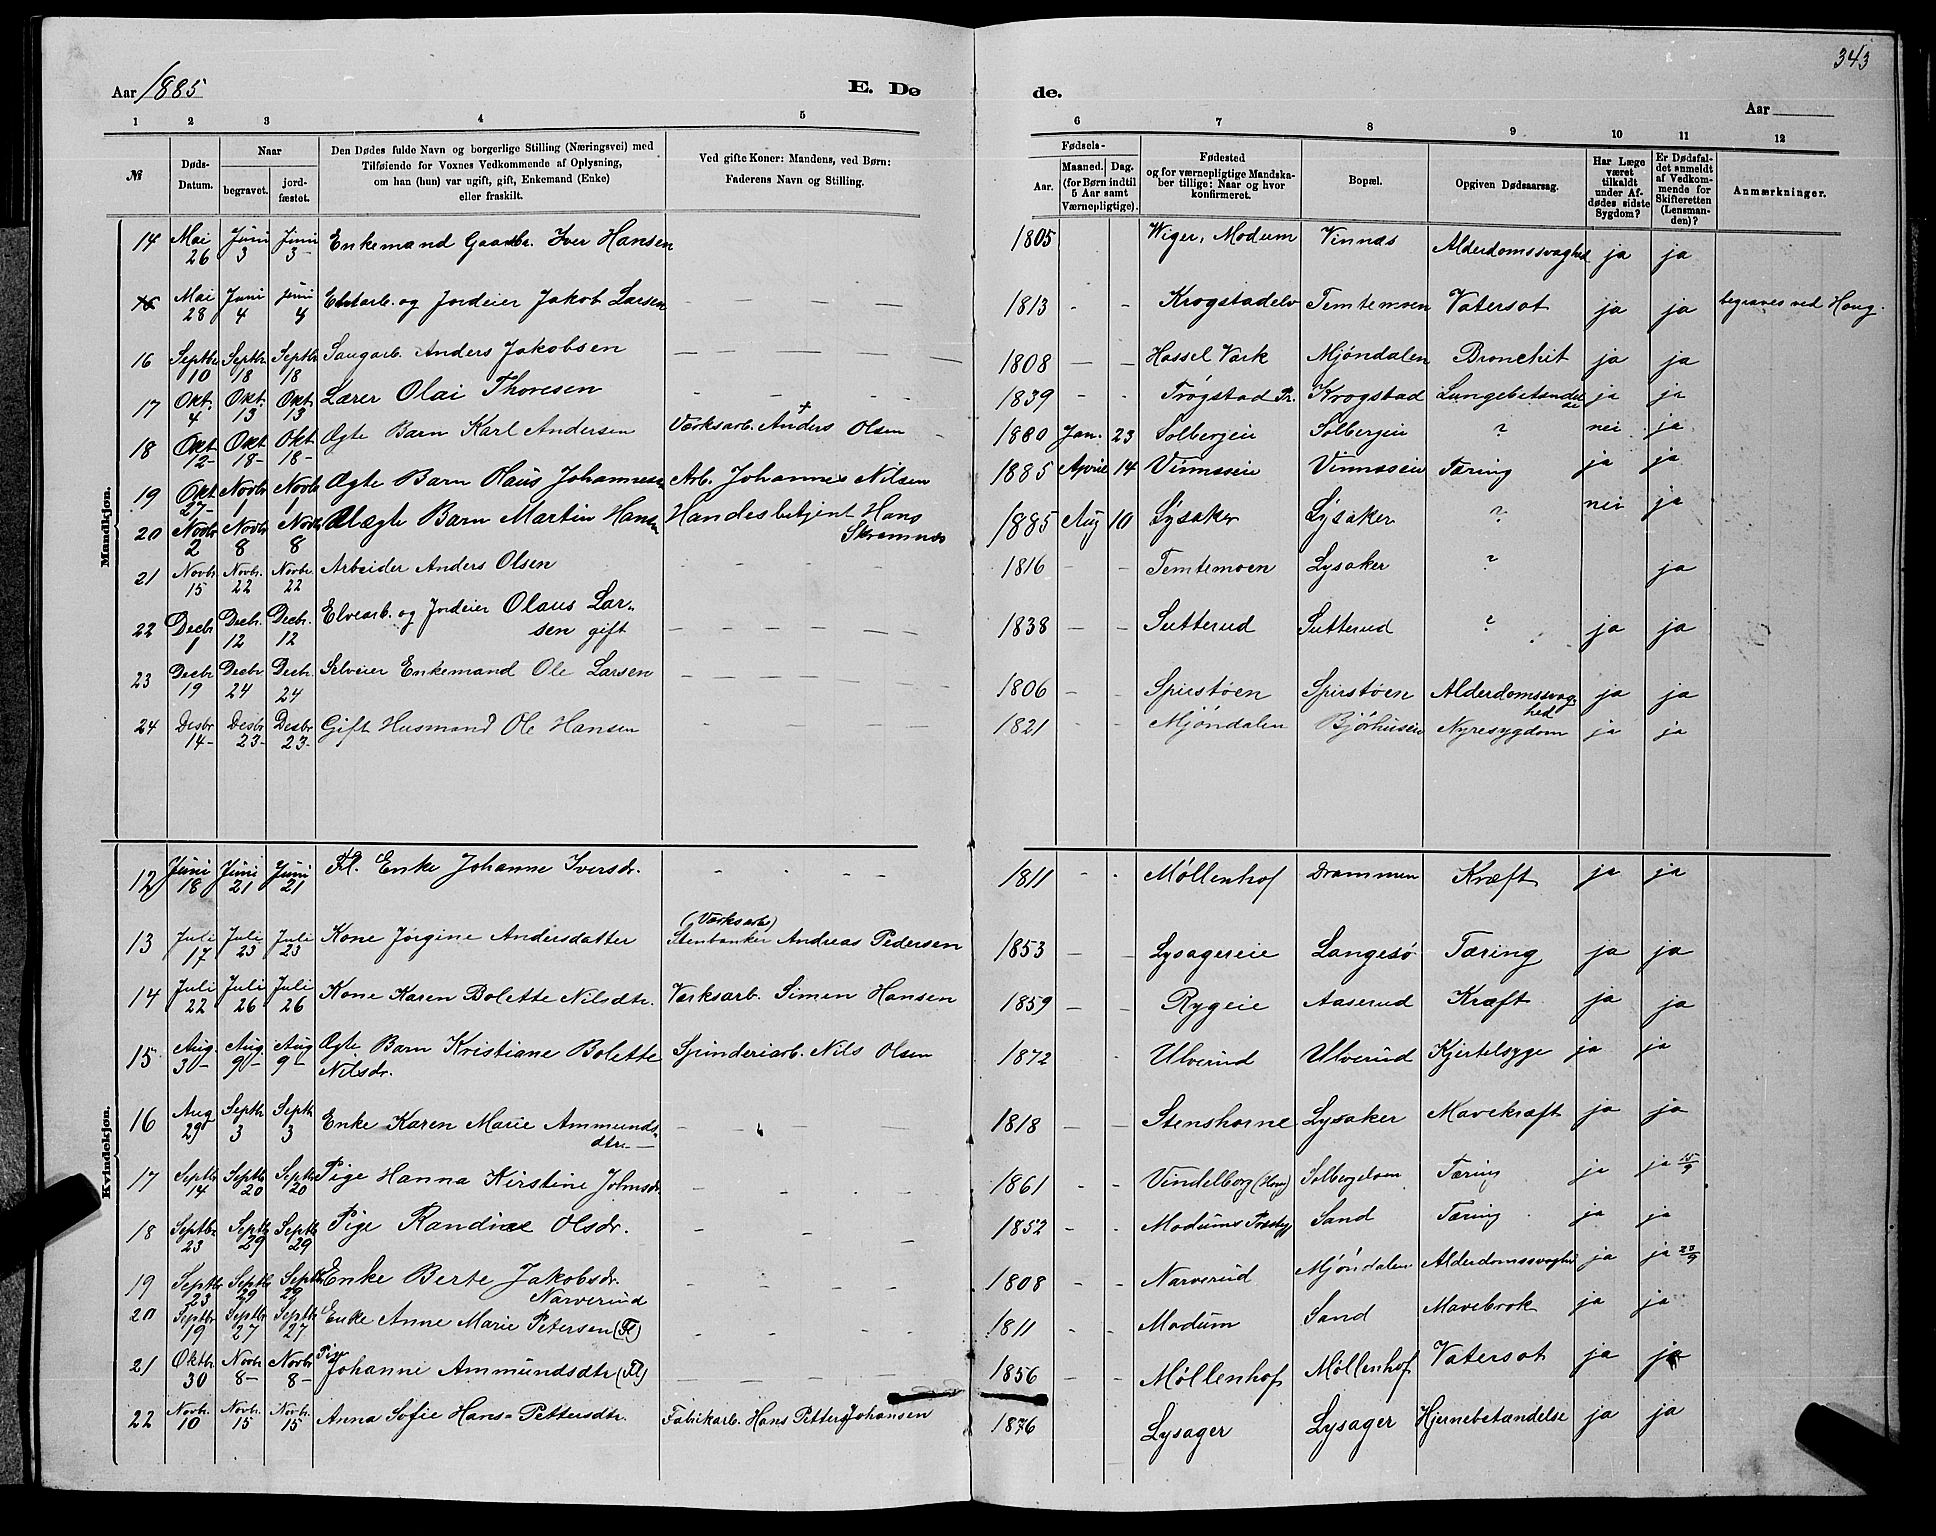 343
Aar 1885
E. Dø
de.
Aar
1 2 3 4 5 6 7 8 9 10 11 12
№
Døds-Datum.
Naar
begravet.
jordfæstet.
Den Dødes fulde Navn og borgerlige Stilling (Næringsvei) med
Tilføiende for Voxnes Vedkommende af Oplysning,
om han (hun) var ugift, gift, Enkemand (Enke)
eller fraskilt.
Ved gifte Koner: Mandens, ved Børn:
Faderens Navn og Stilling.
Fødsels-
Aar.
Maaned. Dag.
(for Børn indtil
5 Aar samt
Værnepligtige).
Fødested
og for værnepligtige Mandska-
ber tillige: Naar og hvor
konfirmeret.
Bopæl.
Opgiven Dødsaarsag.
Har Læge
været
tilkaldt
under Af-
dødes sidste
Sygdom?
Er Dødsfal-
det anmeldt
af Vedkom-
mende for
Skifteretten
(Lensman-
den)?
Anmærkninger.
Mandkjøn.
14 Mai 26 Juni 3 Juni 3 Enkemand Gaardbr. Iver Hansen 1805 Wiger, Modum Vinnæs Alderdomssvaghed ja ja
15 Mai 28 Juni 4 Juni 4 Elvearb. og Jordeier Jakob Larsen 1813 Krogstadelv Temtemoen Vatersot ja ja begraves ved Houg.
16 Septbr 10 Septbr 18 Septbr 18 Saugarb. Anders Jakobsen 1808 Hassel Værk Mjóndalen Bronchit ja ja
17 Okt. 4 Okt. 13 Okt. 13 Lærer Olai Thoresen 1839 Trøgstad Pr. Krogstad Lungebetændelse ja ja
18 Okt 12 Okt 18 Okt 18 Ægte Barn Karl Andersen Værksarb. Anders + Olsen 1880 Jan. 23 Solbergeie Solbergeie ? nei ja
19 Okt 27 Novbr 1 Novbr 1 Ægte Barn Olaüs Johannesen Arb. Johannes Nilsen 1885 April 14 Vinnæseie Vinnæseie Tæring ja ja
20 Novbr 2 Novbr 8 Novbr 8 Uægte Barn Martin Hansen Handesbetjent Hans Skramnæs 1885 Aug 10 Lysaker Lysaker ? nei ja
21 Novbr 15 Novbr. 22 Novbr. 22 Arbeider Anders Olsen 1816 Temtemoen Lysaker ? ja
22 Decbr 1 Decbr. 12 Decbr. 12 Elvearb. og Jordeier Olaus Larsen gift 1838 Sutterud Sutterud ? ja ja
23 Decbr 19 Decbr 24 Decbr. 24 Selveier Enkemand Ole Larsen 1806 Spirstøen Spirstøen Alderdomssvaghed ja ja
24 Desbr 14 Desbr 23 Desbr 23 Gift Husmand Ole Hansen 1821 Mjóndalen Bjørhuseie Nyresygdom ja ja
Kvindekjøn.
12 Juni 18 Juni 21 Juni 21 Fl. Enke Johanne Iversdr. 1811 Møllenhof Drammen Kræft ja ja
13 Juli 17 Juli 23 Juli 23 Kone Jørgine Andersdatter (Værksarb) Stenbanker Andreas Pedersen 1853 Lysagereie Langesø Tæring ja ja
14 Juli 22 Juli 26 Juli 26 Kone Karen Bolette Nilsdtr. Værksarb. Simen Hansen 1859 Rygeie Aaserud Kræft ja ja
15 Aug. 3 Aug. 9 Aug 9 Ægte Barn Kristiane Bolette Nilsdr. Spinderiarb. Nils Olsen 1872 Ulverud Ulverud Kjertelsyge ja ja
16 Aug 29 Septbr 3 Septbr 3 Enke Karen Marie Ammundsdtr. 1818 Stenshorne Lysaker Mavekræft ja ja
17 Septbr 14 Septbr 20 Septbr 20 Pige Hanna Kirstine Johnsdr. 1861 Vindelborg Solbergelven Tæring ja ja 15/9
18 Septbr 23 Septbr 29 Septbr 29 Pige Randine Olsdr. 1852 Modums Præstgj Sand Tæring ja ja
19 Septbr 23 Septbr 29 Septbr 29 Enke Berte Jakobsdr. Narverud 1808 Narverud Mjóndalen Alderdomssvaghd ja ja
20 Septbr 19 Septbr 27 Septbr 27 Enke Anne Marie Petersen (Fl) 1811 Modum Sand Mavebrok ja ja
21 Oktbr 30 Novbr 8 Novbr 8 Pige Johanne Ammundsdtr (Fl) 1856 Møllenhof Møllenhof Vatersot ja ja
22 Novbr. 10 Novbr. 15 Novbr. 15 Anna Sofie Hans-Pettersdtr. Fabrikarb. Hans Petter Johansen 1876 Lysager Lysager Hjernebetændelse ja ja